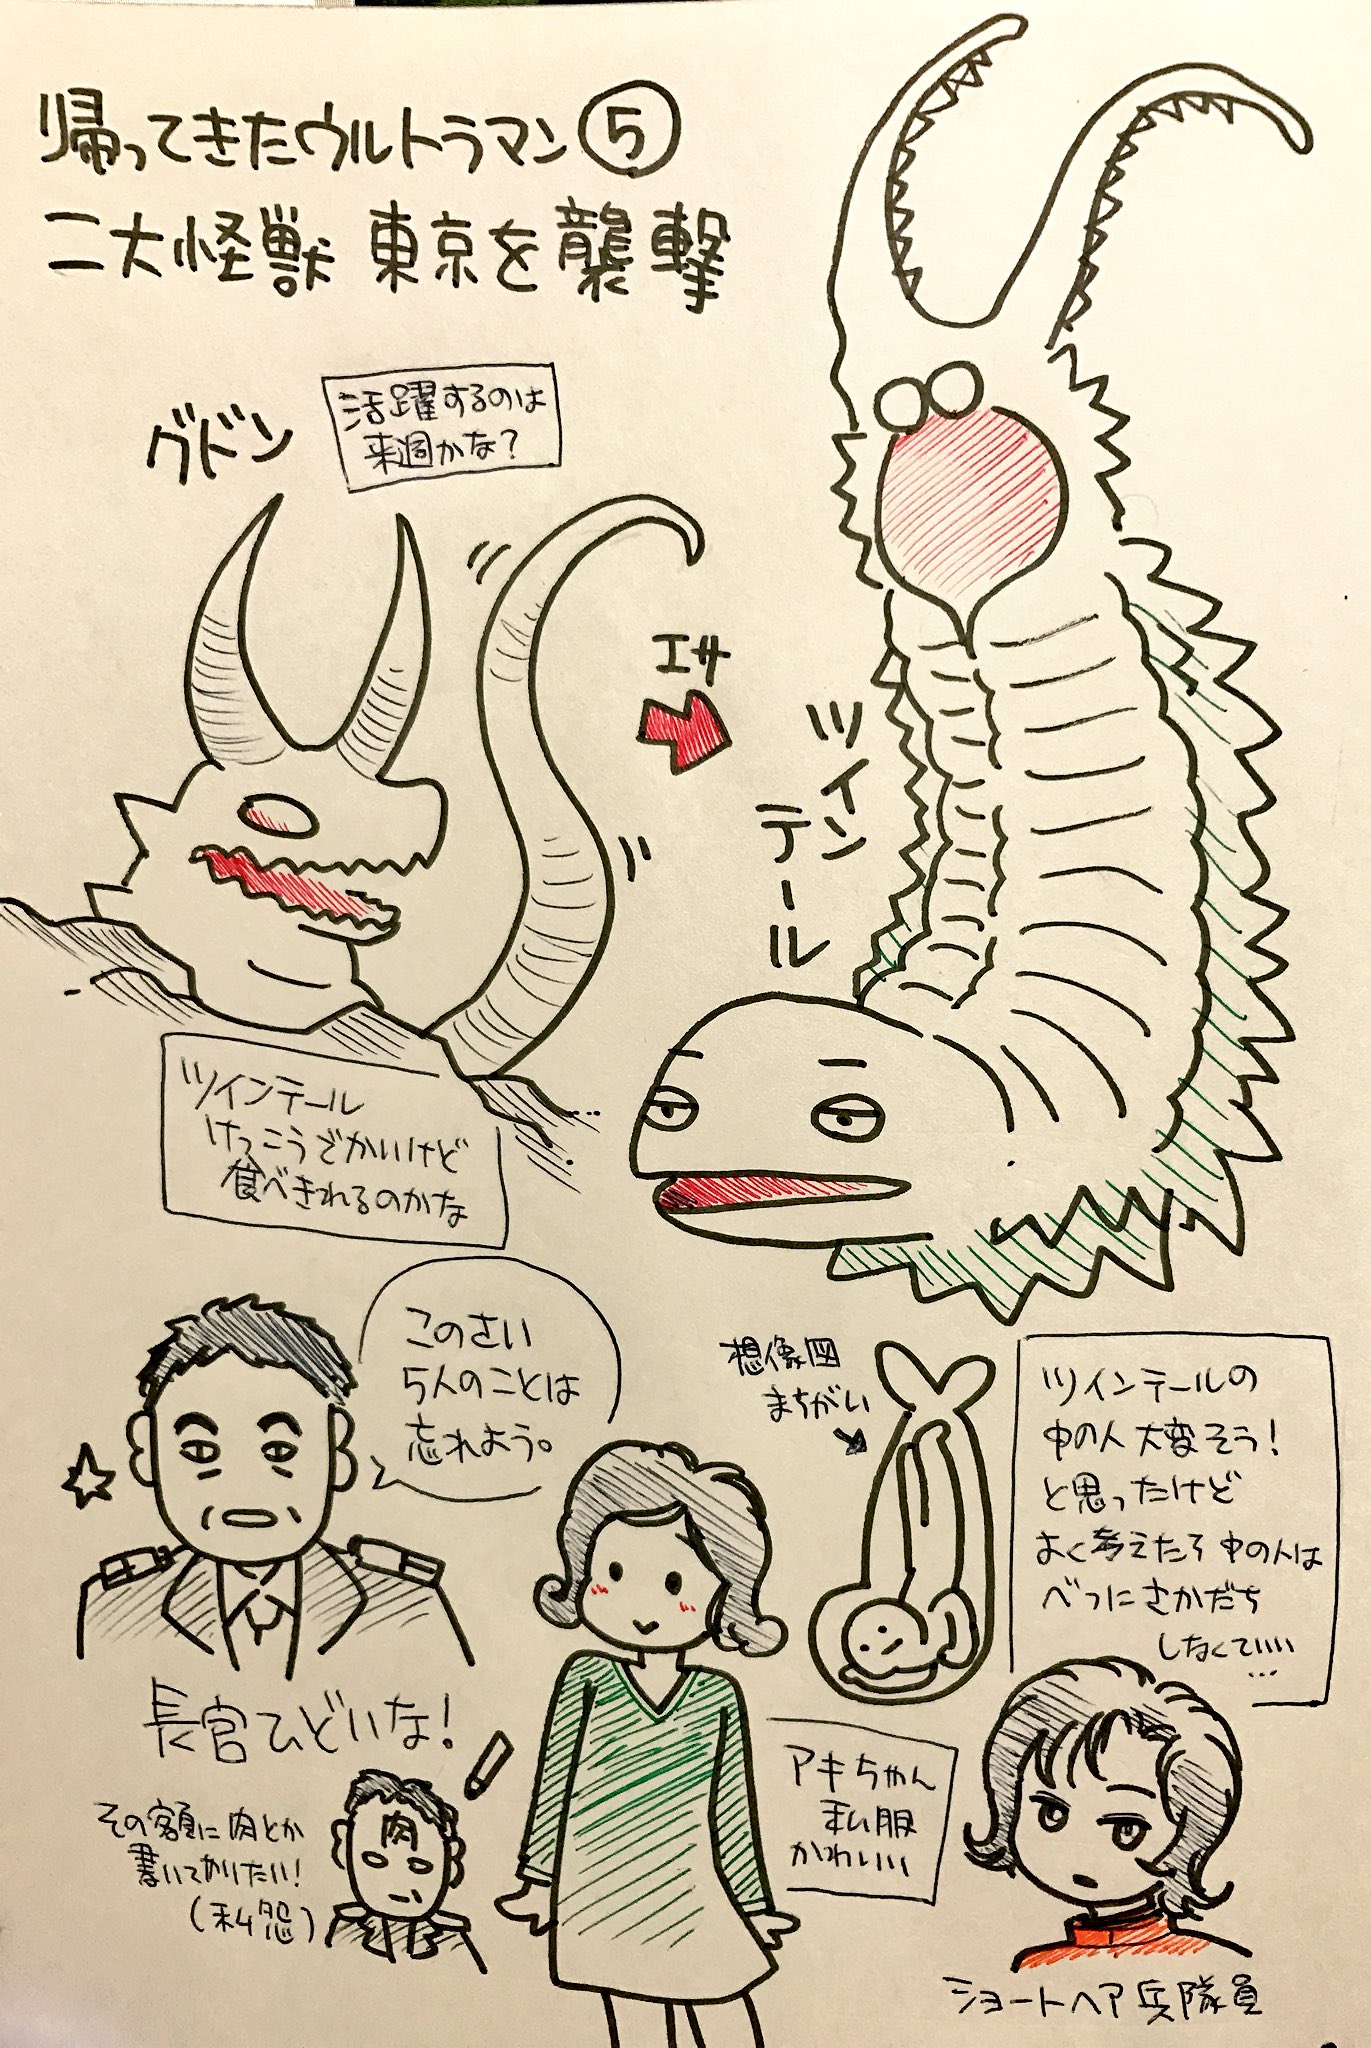 帰ってきたウルトラマン⑤
二大怪獣 東京を襲撃
グドン
活躍するのは
来週かな？
エサ
ツインテール
ツインテール
けっこうでかいけど
食べきれるのかな
このさい
5人のことは
忘れよう。
想像図
まちがい
ツインテールの
中の人 大変そう！
と思ったけど
よく考えたら中の人は
べつにさかだち
しなくていい
…
長官ひどいな！
その額に肉とか
書いてやりたい！
（私怨）
肉
アキちゃん
私服
かわいい
ショートヘア丘隊員